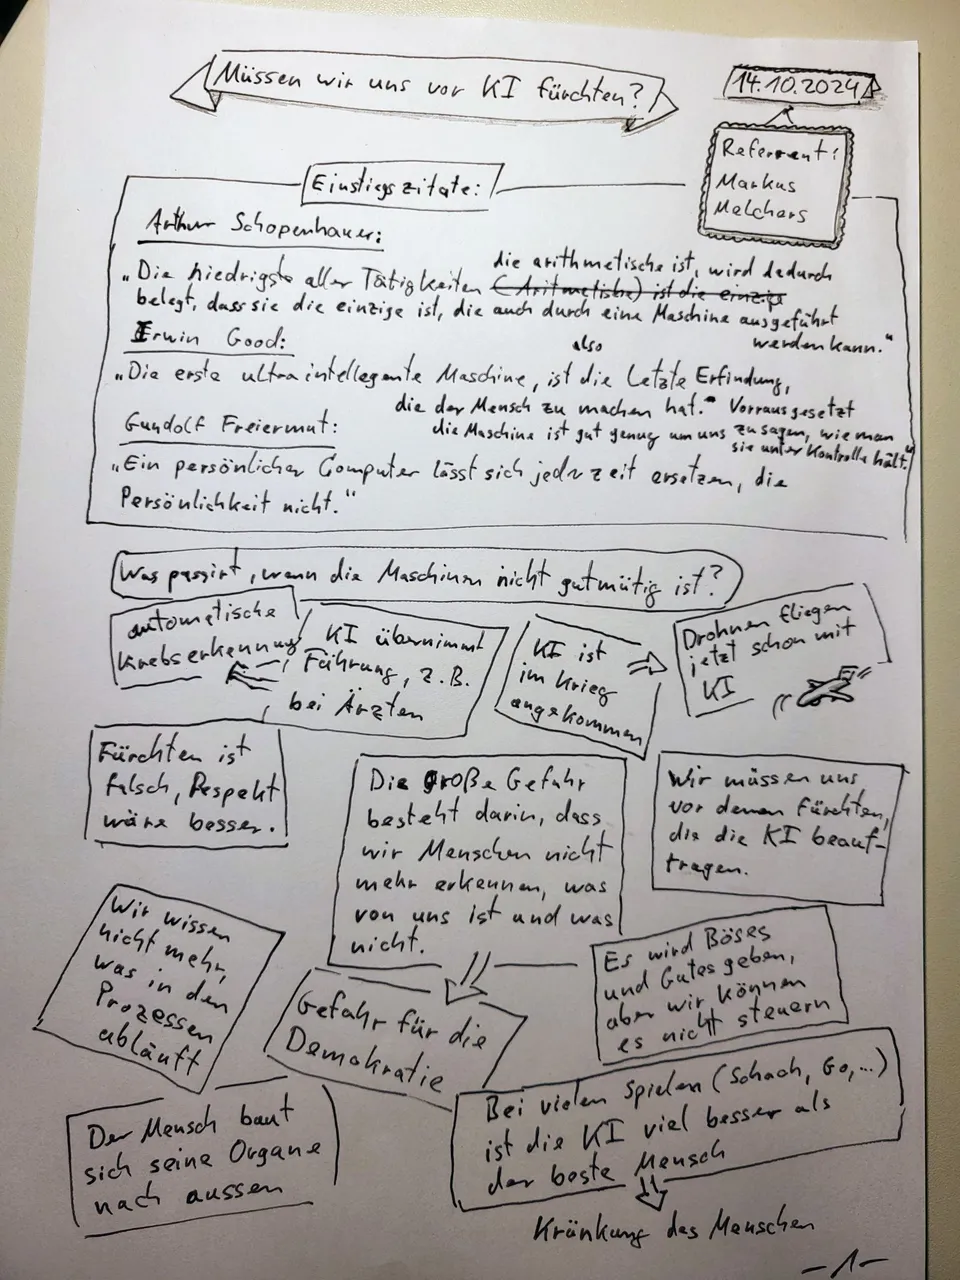 Müssen wir uns vor KI fürchten?
14.10.2024
Referent:
Markus
Melchers
Einstiegszitate:
Arthur Schopenhauer:
die arithmetische ist, wird dadurch
„Die niedrigste aller Tätigkeiten (Aritmetische) ist die einzige
belegt, dass sie die einzige ist, die auch durch eine Maschine ausgeführt
werden kann."
Erwin Good:
also
„Die erste ultraintellegente Maschine, ist die letzte Erfindung,
die der Mensch zu machen hat." Vorrausgesetzt
die Maschine ist gut genug um uns zu sagen, wie man
sie unter Kontrolle hält."
Gundolf Freiermut:
„Ein persönlicher Computer lässt sich jederzeit ersetzen, die
Persönlichkeit nicht."
Was passirt, wenn die Maschinen nicht gutmütig ist?
automatische
Krebserkennung
KI übernimmt
Führung, z.B.
bei Ärzten
KI ist
im Krieg
angekommen
Drohnen fliegen
jetzt schon mit
KI
Fürchten ist
falsch, Respekt
wäre besser.
Die große Gefahr
besteht darin, dass
wir Menschen nicht
mehr erkennen, was
von uns ist und was
nicht.
Wir müssen uns
vor denen fürchten,
die die KI beauf-
tragen.
Wir wissen
nicht mehr,
was in den
Prozessen
abläuft
Gefahr für die
Demokratie
Es wird Böses
und Gutes geben,
aber wir können
es nicht steuern
Der Mensch baut
sich seine Organe
nach aussen
Bei vielen Spielen (Schach, Go,...)
ist die KI viel besser als
der beste Mensch
Kränkung des Menschen
-1-